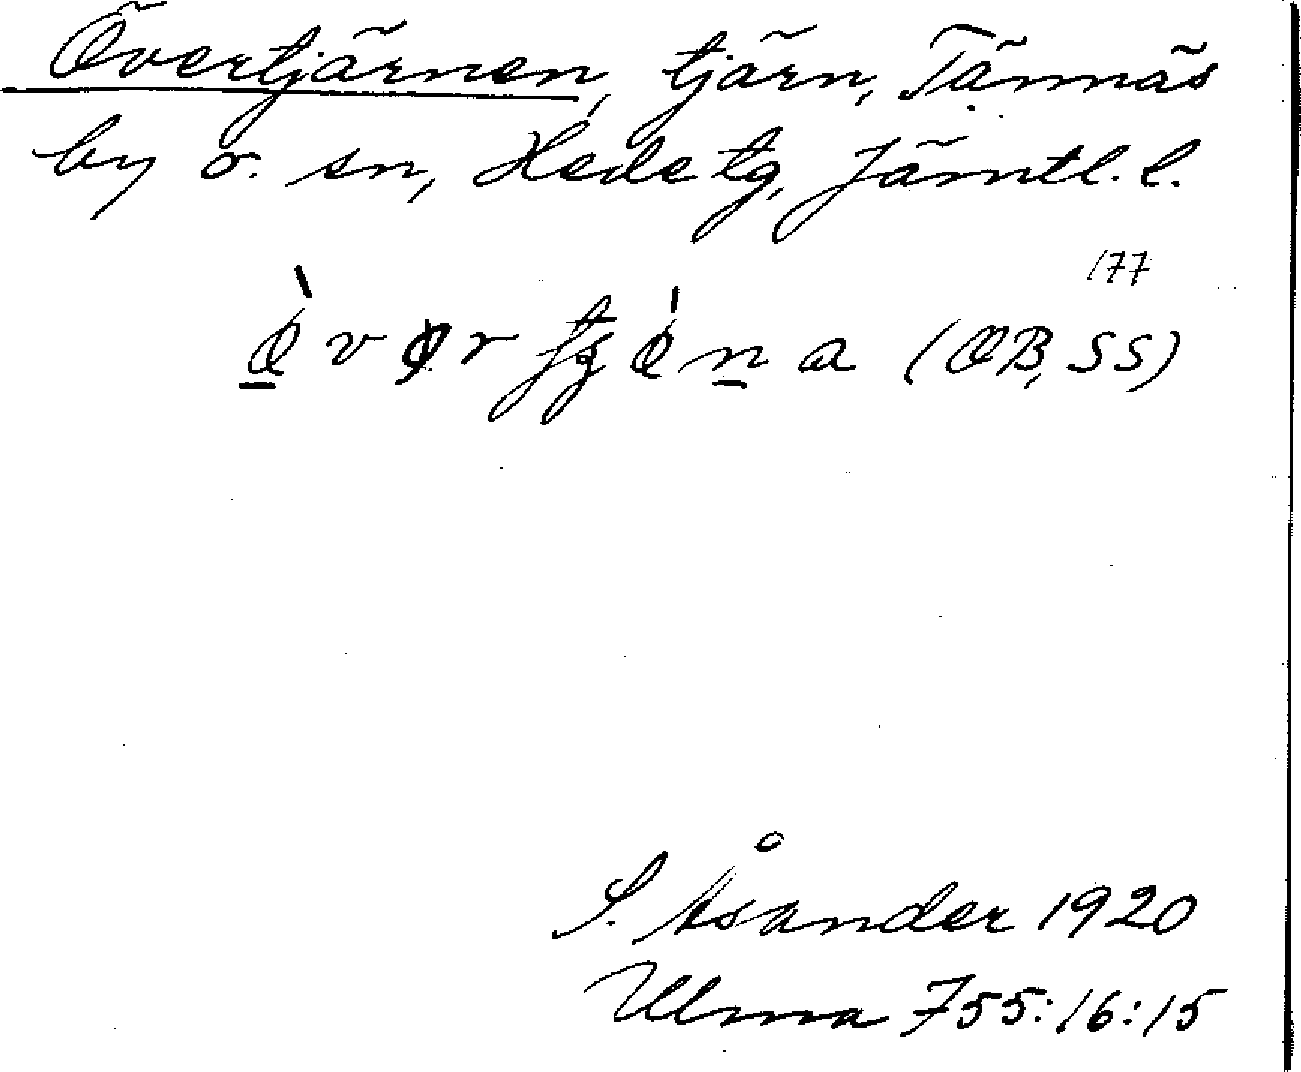 Övertjärnen, tjärn, Tännäs
by o. sn, Hede tg, Jämtl. l.
177
(OB, SS)
S. Åsander 1920
Ulma 755:16:15